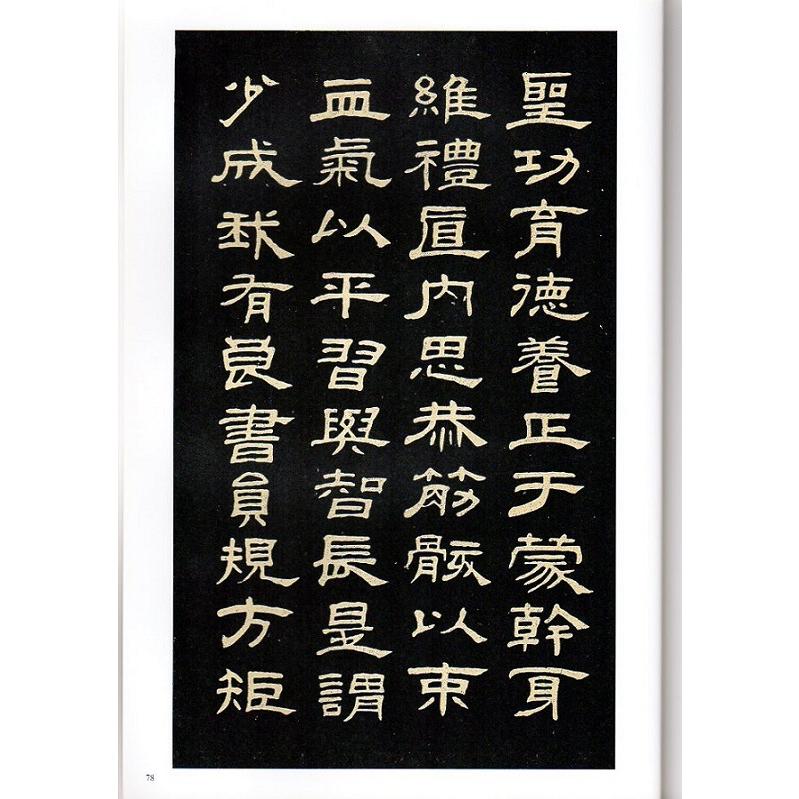 聖功育德養正于蒙幹身
維禮直內思恭筋骸以束
血氣以平習與智長是謂
少成我有良書員規方矩
78